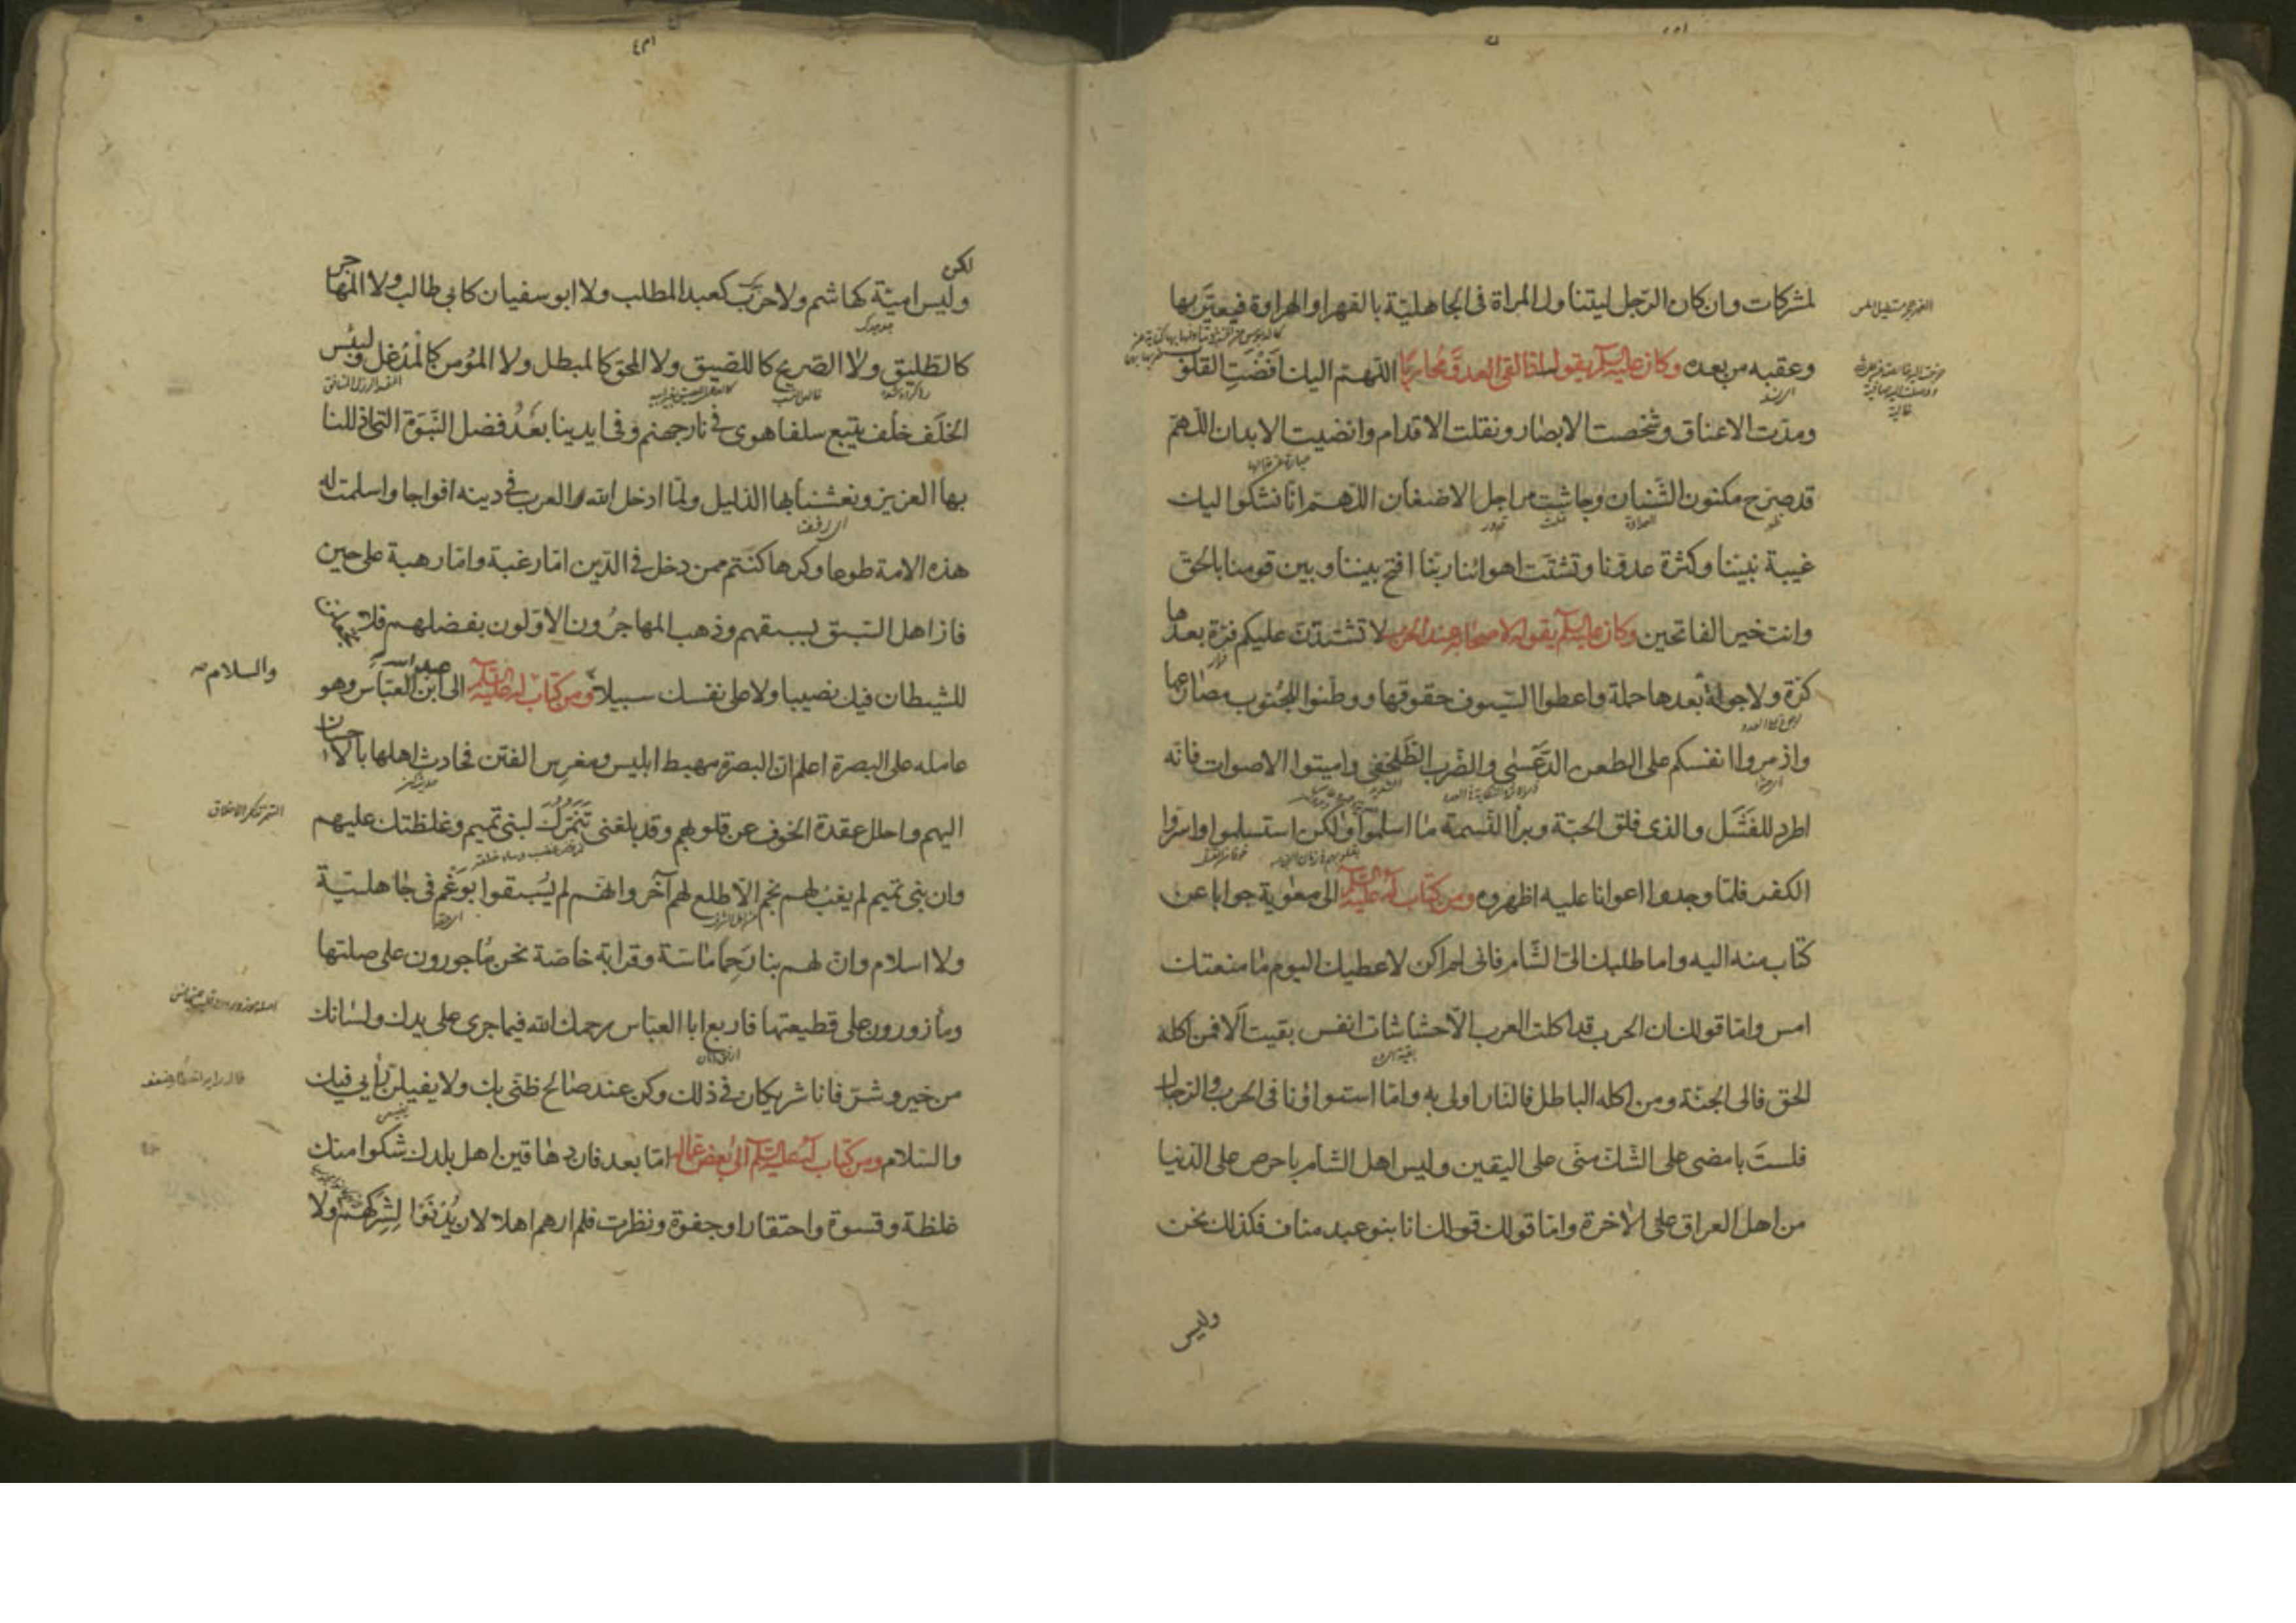 لمشركات وان كان الرّجل ليتناول المراة فى الجاهليّة بالفهر او الهراوة فيعيّر بها
وعقبه من بعده وكان عليه السلام يقول اذا لقى العدوّ محاربًا اللّهمّ اليك افضت القلو
ومدّت الاعناق وشخصت الابصار ونقلت الاقدام وانضيت الابدان اللّهمّ
قد صرّح مكنون الشّنآن وجاشت مراجل الاضغان اللّهمّ انا نشكوا ليك
غيبة نبيّنا وكثرة عدوّنا وتشتّت اهوائنا ربّنا افتح بيننا وبين قومنا بالحق
وانت خير الفاتحين وكان عليه السلام يقول لاصحابه عند الحرب لا تشتدّنّ عليكم فرّة بعدها
كرّة ولا جولة بعدها حملة واعطوا السّيوف حقوقها ووطّنوا للجنوب مصارعها
واذمروا انفسكم على الطعن الدّعسىّ والضّرب الطّلحفى واميتوا الاصوات فانّه
اطرد للفشل والذى فلق الحبّة وبرأ النّسمة ما اسلموا ولكن استسلموا واسرّوا
الكفر فلمّا وجدوا اعوانا عليه اظهروه ومن كتاب له عليه السلام الى معوية جوابا عن
كتاب منه اليه واما طلبك الىّ الشّام فانى لم اكن لاعطيك اليوم ما منعتك
امس وامّا قولك ان الحرب قد اكلت العرب الّا حشاشات انفس بقيت ألا فمن اكله
الحق فالى الجنّة ومن اكله الباطل فالنّار اولى به وامّا استواؤنا فى الحرب والرّجال
فلستَ بامضى على الشّك منّى على اليقين وليس اهل الشام باحرص على الدّنيا
من اهل العراق على الاخرة وامّا قولك انا بنو عبد مناف فكذلك نحن
وليس
لكن
وليس اميّة كهاشم ولا حرب كعبد المطلب ولا ابو سفيان كابى طالب ولا المهاجر
كالطّليق ولا الصّريح كاللصيق ولا المحق كالمبطل ولا المؤمن كالمدغل ولبئس
الخلَف خلف يتبع سلفا هوى فى نار جهنم وفى ايدينا بعدُ فضل النّبوّة التى اذللنا
بها العزيز ونعشنا بها الذليل ولمّا ادخل الله العرب فى دينه افواجا واسلمت له
هذه الامة طوعا وكرها كنتم ممن دخل فى الدّين امّا رغبة وامّا رهبة على حين
فاز اهل السّبق بسبقهم وذهب المهاجرون الاوّلون بفضلهم فلا تجعلنّ
للشيطان فيك نصيبا ولا على نفسك سبيلا ومن كتاب له عليه السلام الى عبد الله ابن العبّاس وهو
والسلام
عامله على البصرة اعلم انّ البصرة مهبط ابليس ومغرس الفتن فحادث اهلها بالاحسان
اليهم واحلل عقدة الخوف عن قلوبهم وقد بلغنى تنمّرك لبنى تميم وغلظتك عليهم
وان بنى تميم لم يغب لهم نجم الّا طلع لهم آخر وانّهم لم يُسبقوا بوغم فى جاهليّة
ولا اسلام وانّ لهم بنا رحِما ماسّة وقرابة خاصّة نحن ماجورون على صلتها
ومأزورون على قطيعتها فاربع ابا العبّاس رحمك الله فيما جرى على يدك ولسانك
من خير وشرّ فانا شريكان فى ذلك وكن عند صالح ظنّى بك ولا يفيلنّ رأيى فيك
والسّلام ومن كتاب له عليه السلام الى بعض عماله امّا بعد فان دهاقين اهل بلدك شكوا منك
غلظة وقسوة واحتقارا وجفوة ونظرت فلم ارهم اهلا لان يُدنَوا لشركهم ولا